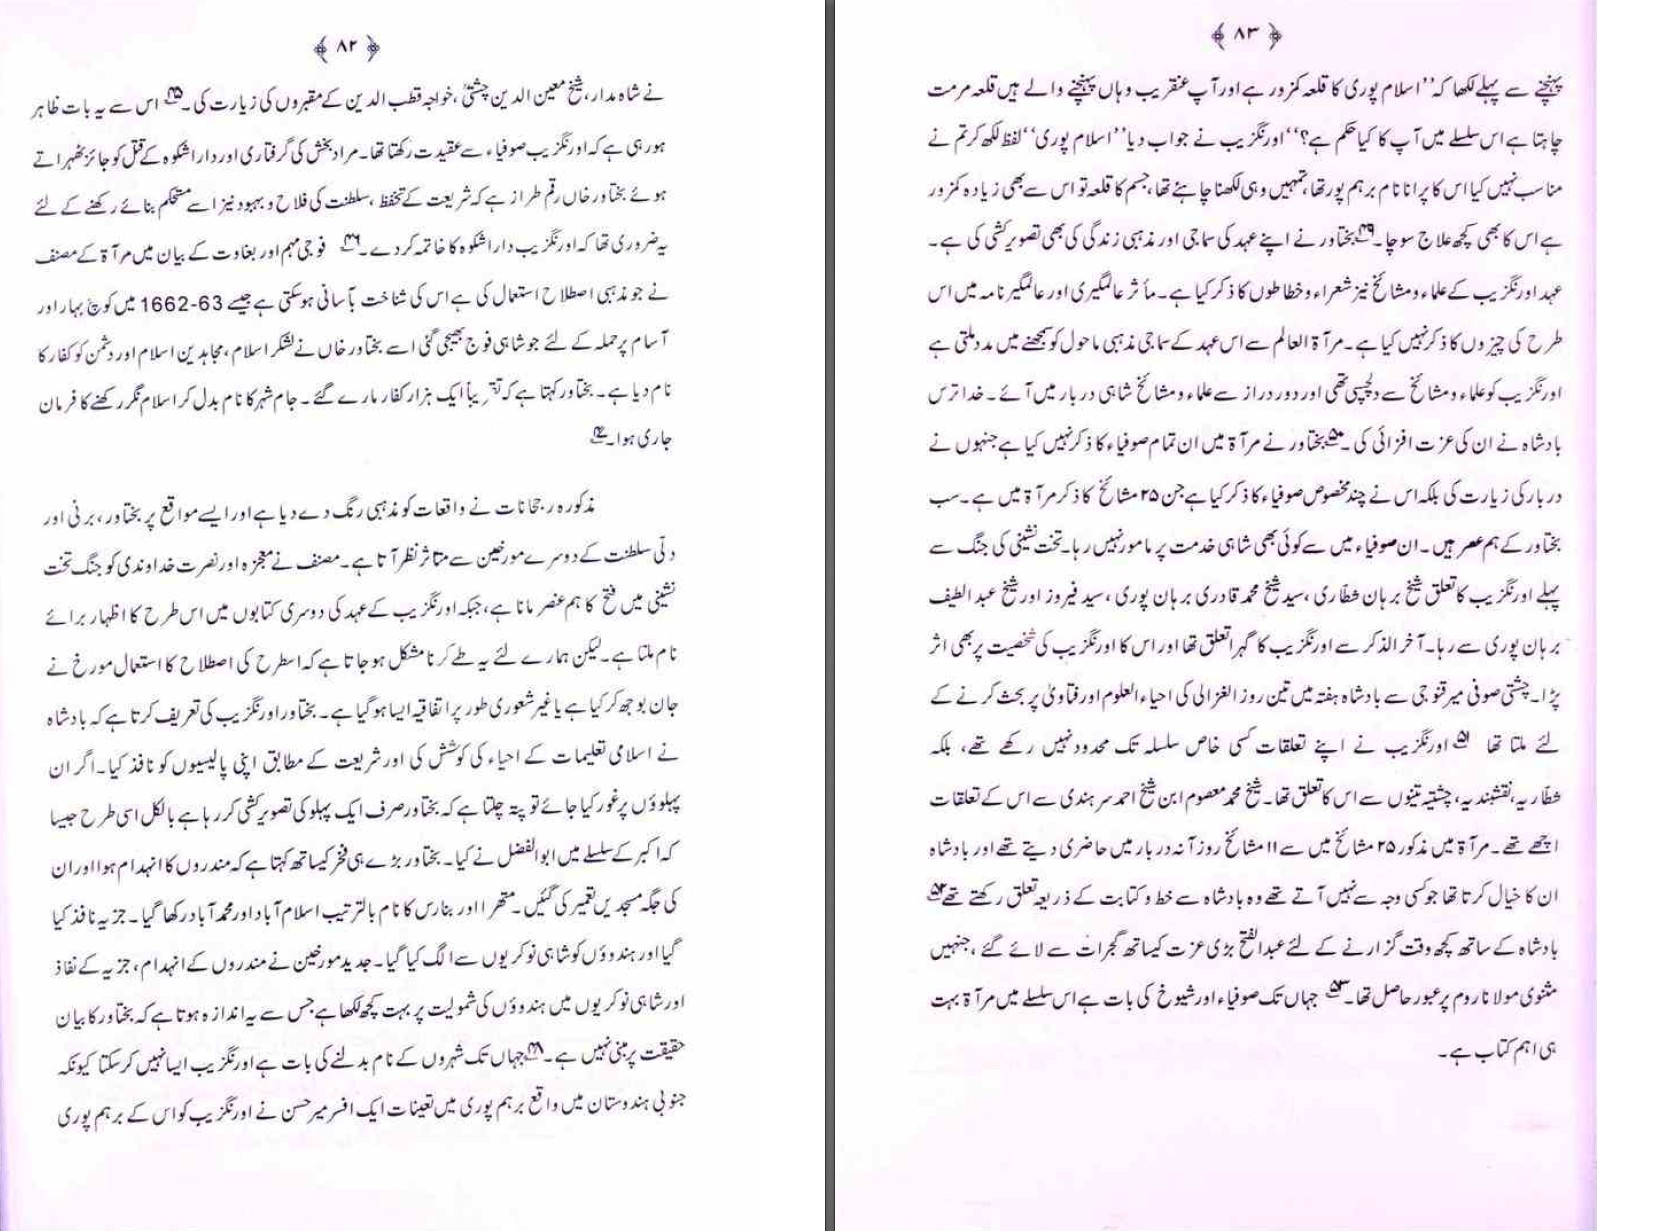 ﴿ ۸۲ ﴾
نے شاہ مدار، شیخ معین الدین چشتیؒ، خواجہ قطب الدین کے مقبروں کی زیارت کی۔۴۵ اس سے یہ بات ظاہر
ہورہی ہے کہ اورنگزیب صوفیاء سے عقیدت رکھتا تھا۔ مراد بخش کی گرفتاری اور داراشکوہ کے قتل کو جائز ٹھہراتے
ہوئے بختاور خاں رقم طراز ہے کہ شریعت کے تحفظ، سلطنت کی فلاح و بہبود نیز اسے مستحکم بنائے رکھنے کے لئے
یہ ضروری تھا کہ اورنگزیب داراشکوہ کا خاتمہ کردے۔۴۶ فوجی مہم اور بغاوت کے بیان میں مرآۃ کے مصنف
نے جو مذہبی اصطلاح استعمال کی ہے اس کی شناخت بآسانی ہوسکتی ہے جیسے 1662-63 میں کوچ بہار اور
آسام پر حملہ کے لئے جو شاہی فوج بھیجی گئی اسے بختاور خاں نے لشکر اسلام، مجاہدین اسلام اور دشمن کو کفار کا
نام دیا ہے۔ بختاور کہتا ہے کہ تقریباً ایک ہزار کفار مارے گئے۔ جام شہر کا نام بدل کر اسلام نگر رکھنے کا فرمان
جاری ہوا۔۴۷
مذکورہ رجحانات نے واقعات کو مذہبی رنگ دے دیا ہے اور ایسے مواقع پر بختاور، برنی اور
دلّی سلطنت کے دوسرے مورخین سے متاثر نظر آتا ہے۔ مصنف نے معجزہ اور نصرت خداوندی کو جنگ تخت
نشینی میں فتح کا ہم عنصر مانا ہے، جبکہ اورنگزیب کے عہد کی دوسری کتابوں میں اس طرح کا اظہار برائے
نام ملتا ہے۔ لیکن ہمارے لئے یہ طے کرنا مشکل ہوجاتا ہے کہ اسطرح کی اصطلاح کا استعمال مورخ نے
جان بوجھ کر کیا ہے یا غیر شعوری طور پر اتفاقیہ ایسا ہوگیا ہے۔ بختاور اورنگزیب کی تعریف کرتا ہے کہ بادشاہ
نے اسلامی تعلیمات کے احیاء کی کوشش کی اور شریعت کے مطابق اپنی پالیسیوں کو نافذ کیا۔ اگر ان
پہلوؤں پر غور کیا جائے تو پتہ چلتا ہے کہ بختاور صرف ایک پہلو کی تصویر کشی کررہا ہے بالکل اسی طرح جیسا
کہ اکبر کے سلسلے میں ابوالفضل نے کیا۔ بختاور بڑے ہی فخر کیساتھ کہتا ہے کہ مندروں کا انہدام ہوا اور ان
کی جگہ مسجدیں تعمیر کی گئیں۔ متھرا اور بنارس کا نام بالترتیب اسلام آباد اور محمد آباد رکھا گیا۔ جزیہ نافذ کیا
گیا اور ہندوؤں کو شاہی نوکریوں سے الگ کیا گیا۔ جدید مورخین نے مندروں کے انہدام، جزیہ کے نفاذ
اور شاہی نوکریوں میں ہندوؤں کی شمولیت پر بہت کچھ لکھا ہے جس سے یہ اندازہ ہوتا ہے کہ بختاور کا بیان
حقیقت پر مبنی نہیں ہے۔۴۸ جہاں تک شہروں کے نام بدلنے کی بات ہے اورنگزیب ایسا نہیں کرسکتا کیونکہ
جنوبی ہندوستان میں واقع برہم پوری میں تعینات ایک افسر میر حسن نے اورنگزیب کو اس کے برہم پوری
﴿ ۸۳ ﴾
پہنچنے سے پہلے لکھا کہ ’’اسلام پوری کا قلعہ کمزور ہے اور آپ عنقریب وہاں پہنچنے والے ہیں قلعہ مرمت
چاہتا ہے اس سلسلے میں آپ کا کیا حکم ہے؟‘‘ اورنگزیب نے جواب دیا ’’اسلام پوری‘‘ لفظ لکھ کر تم نے
مناسب نہیں کیا اس کا پرانا نام برہم پور تھا، تمہیں وہی لکھنا چاہئے تھا، جسم کا قلعہ تو اس سے بھی زیادہ کمزور
ہے اس کا بھی کچھ علاج سوچا۔۴۹ بختاور نے اپنے عہد کی سماجی اور مذہبی زندگی کی بھی تصویر کشی کی ہے۔
عہد اورنگزیب کے علماء و مشائخ نیز شعراء و خطاطوں کا ذکر کیا ہے۔ مآثر عالمگیری اور عالمگیر نامہ میں اس
طرح کی چیزوں کا ذکر نہیں کیا ہے۔ مرآۃ العالم سے اس عہد کے سماجی مذہبی ماحول کو سمجھنے میں مدد ملتی ہے
اورنگزیب کو علماء و مشائخ سے دلچسپی تھی اور دور دراز سے علماء و مشائخ شاہی دربار میں آئے۔ خدا ترس
بادشاہ نے ان کی عزت افزائی کی۔۵۰ بختاور نے مرآۃ میں ان تمام صوفیاء کا ذکر نہیں کیا ہے جنہوں نے
دربار کی زیارت کی بلکہ اس نے چند مخصوص صوفیاء کا ذکر کیا ہے جن ۲۵ مشائخ کا ذکر مرآۃ میں ہے۔ سب
بختاور کے ہم عصر ہیں۔ ان صوفیاء میں سے کوئی بھی شاہی خدمت پر مامور نہیں رہا۔ تخت نشینی کی جنگ سے
پہلے اورنگزیب کا تعلق شیخ برہان شطاری، سید شیخ محمد قادری برہان پوری، سید فیروز اور شیخ عبد الطیف
برہان پوری سے رہا۔ آخر الذکر سے اورنگزیب کا گہرا تعلق تھا اور اس کا اورنگزیب کی شخصیت پر بھی اثر
پڑا۔ چشتی صوفی میر قنوجی سے بادشاہ ہفتہ میں تین روز الغزالی کی احیاء العلوم اور فتاویٰ پر بحث کرنے کے
لئے ملتا تھا ۵۱ اورنگزیب نے اپنے تعلقات کسی خاص سلسلہ تک محدود نہیں رکھے تھے، بلکہ
شطاریہ، نقشبندیہ، چشتیہ تینوں سے اس کا تعلق تھا۔ شیخ محمد معصوم ابن شیخ احمد سرہندی سے اس کے تعلقات
اچھے تھے۔ مرآۃ میں مذکور ۲۵ مشائخ میں سے ۱۱ مشائخ روزآنہ دربار میں حاضری دیتے تھے اور بادشاہ
ان کا خیال کرتا تھا جو کسی وجہ سے نہیں آتے تھے وہ بادشاہ سے خط و کتابت کے ذریعہ تعلق رکھتے تھے۵۲
بادشاہ کے ساتھ کچھ وقت گزارنے کے لئے عبدالفتح بڑی عزت کیساتھ گجرات سے لائے گئے، جنہیں
مثنوی مولانا روم پر عبور حاصل تھا۔۵۳ جہاں تک صوفیاء اور شیوخ کی بات ہے اس سلسلے میں مرآۃ بہت
ہی اہم کتاب ہے۔